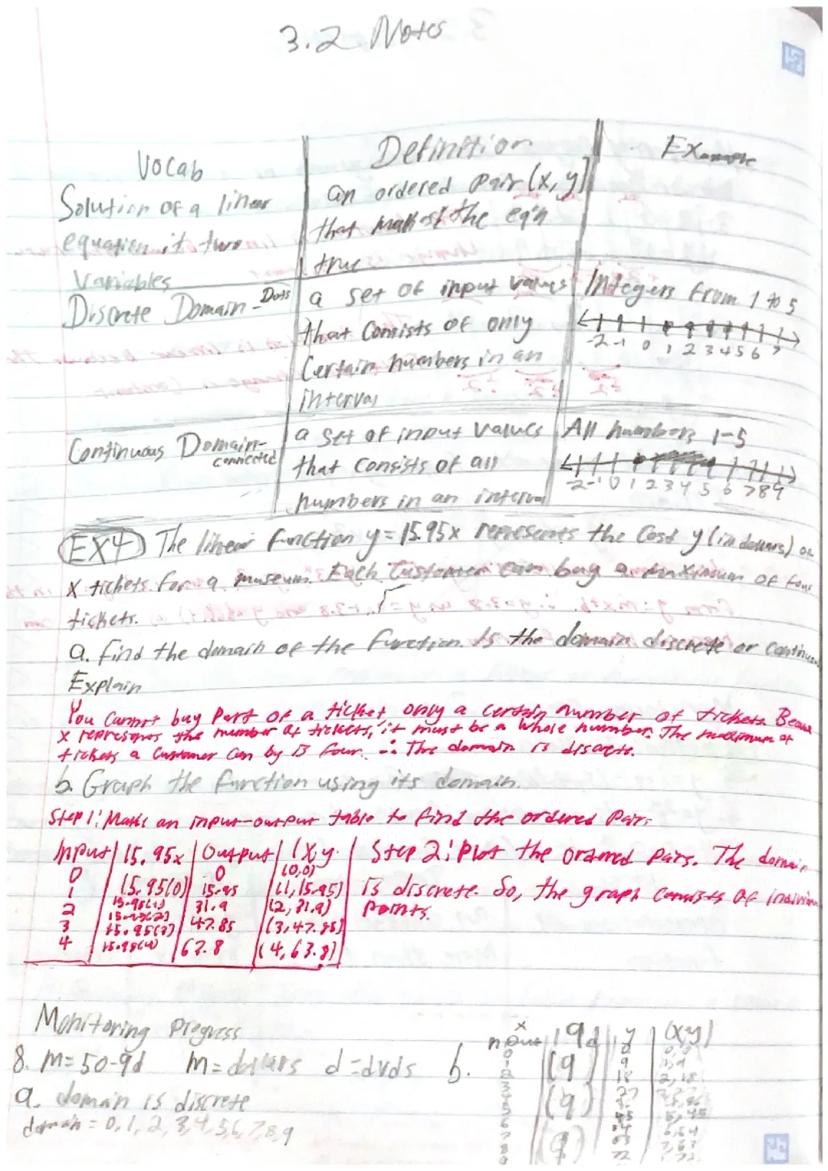 3.2 Notes
Vocab | Definition | Example
Solution of a linear equation it two variables | an ordered pair (x, y) that makes the eq'n true
Discrete Domain - Dots | a set of input values that consists of only certain numbers in an interval | Integers from 1 to 5
-2 -1 0 1 2 3 4 5 6 7
Continuous Domain - connected | a set of input values that consists of all numbers in an interval | All numbers 1-5
-2 -1 0 1 2 3 4 5 6 7 8 9
EX4 The linear function y = 15.95x represents the cost y (in dollars) of
x tickets for a museum. Each Customer can buy a maximum of four
tickets.
a. find the domain of the function. Is the domain discrete or continuous
Explain
You cannot buy part of a ticket only a certain number of tickets. Because
x represents the number of tickets, it must be a whole number. The maximum of
tickets a customer can by is four. ∴ The domain is discrete.
b. Graph the function using its domain.
Step 1: Make an input-output table to find the ordered pairs
Input | 15.95x | Output | (x y)
0 | 15.95(0) | 0 | (0,0)
1 | 15.95(1) | 15.95 | (1, 15.95)
2 | 15.95(2) | 31.9 | (2, 31.9)
3 | 15.95(3) | 47.85 | (3, 47.85)
4 | 15.95(4) | 63.8 | (4, 63.8)
Step 2: Plot the ordered pairs. The domain
is discrete. So, the graph consists of individual
points.
Monitoring Progress
8. m = 50-9d m = dollars d = dvds
a. domain is discrete
domain = 0, 1, 2, 3, 4, 5, 6, 7, 8, 9
b. x | 9d | y | (xy)